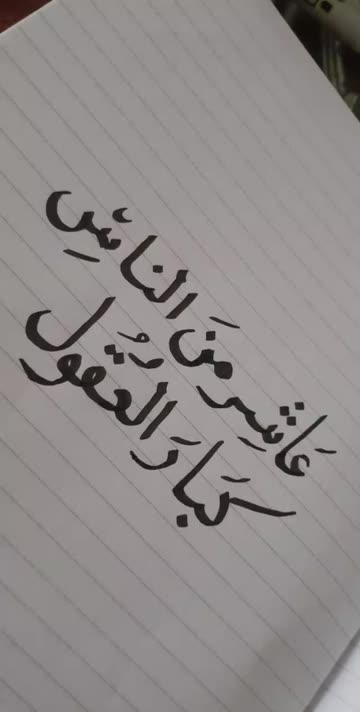 عَاشِر مِنَ الناسِ
كبَارَ العقُول